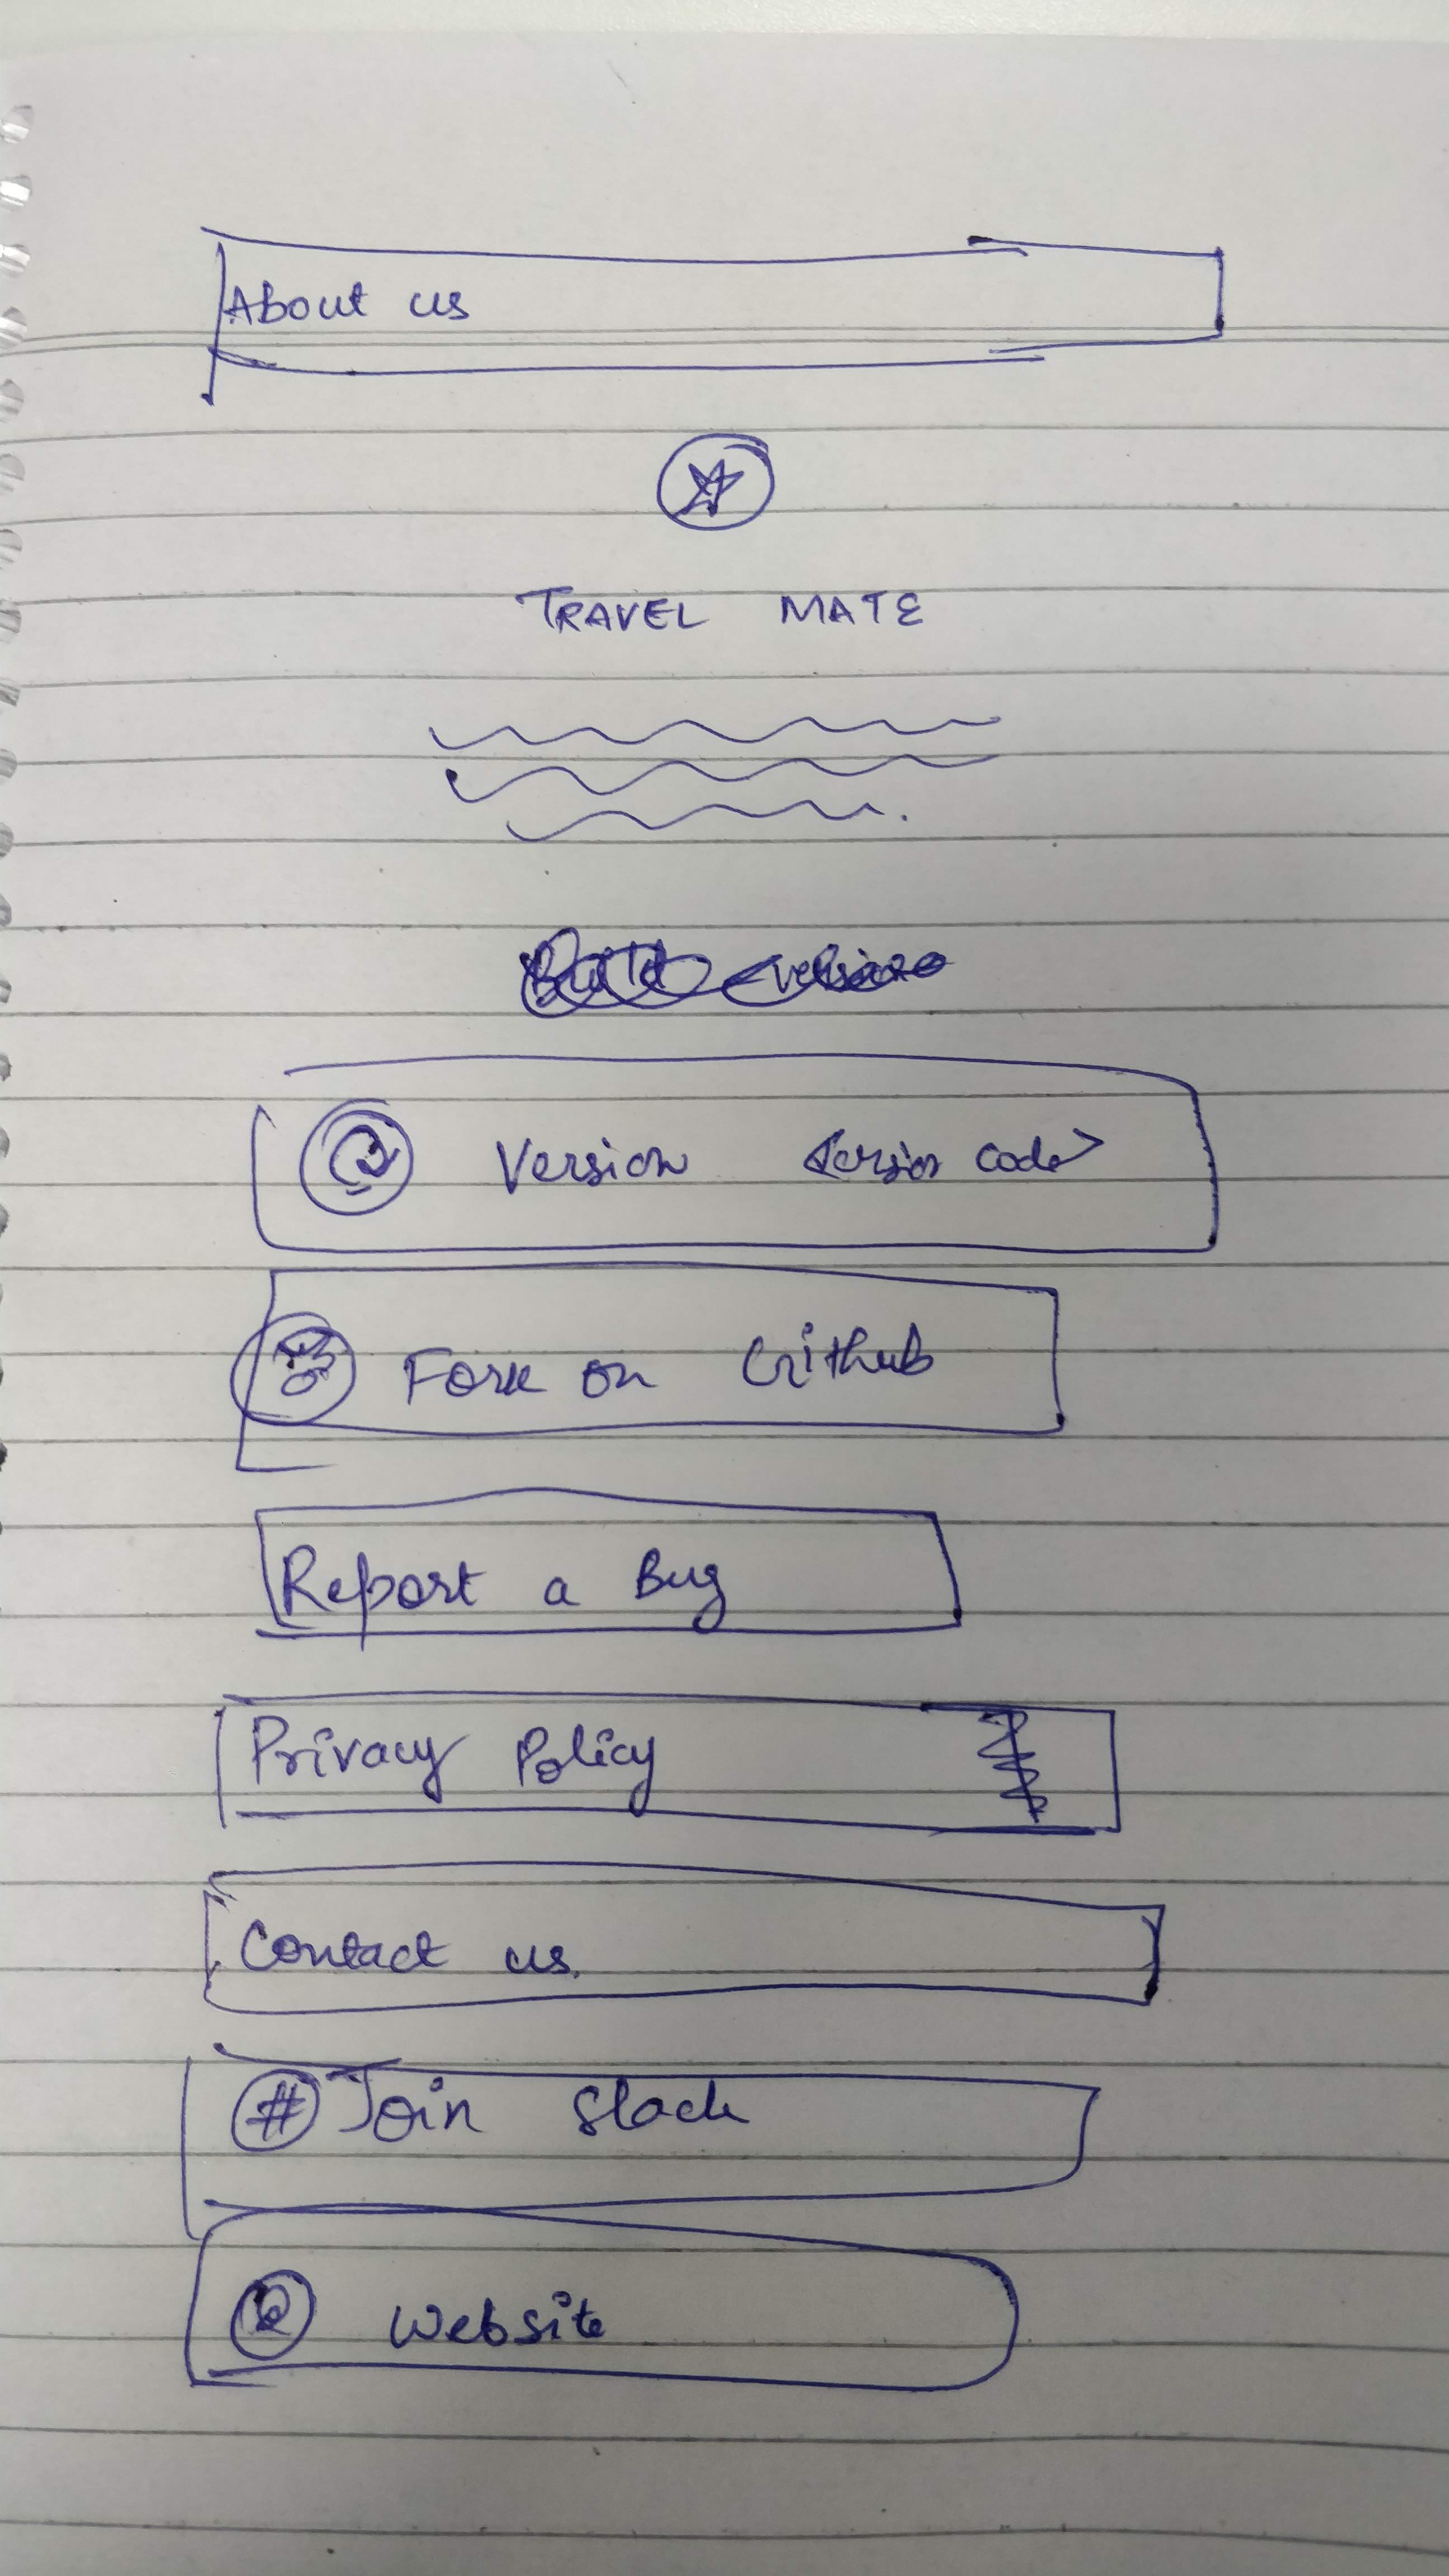 About us
TRAVEL MATE
Version <Version code>
Fork on Github
Report a Bug
Privacy Policy
Contact us.
# Join Slack
Website